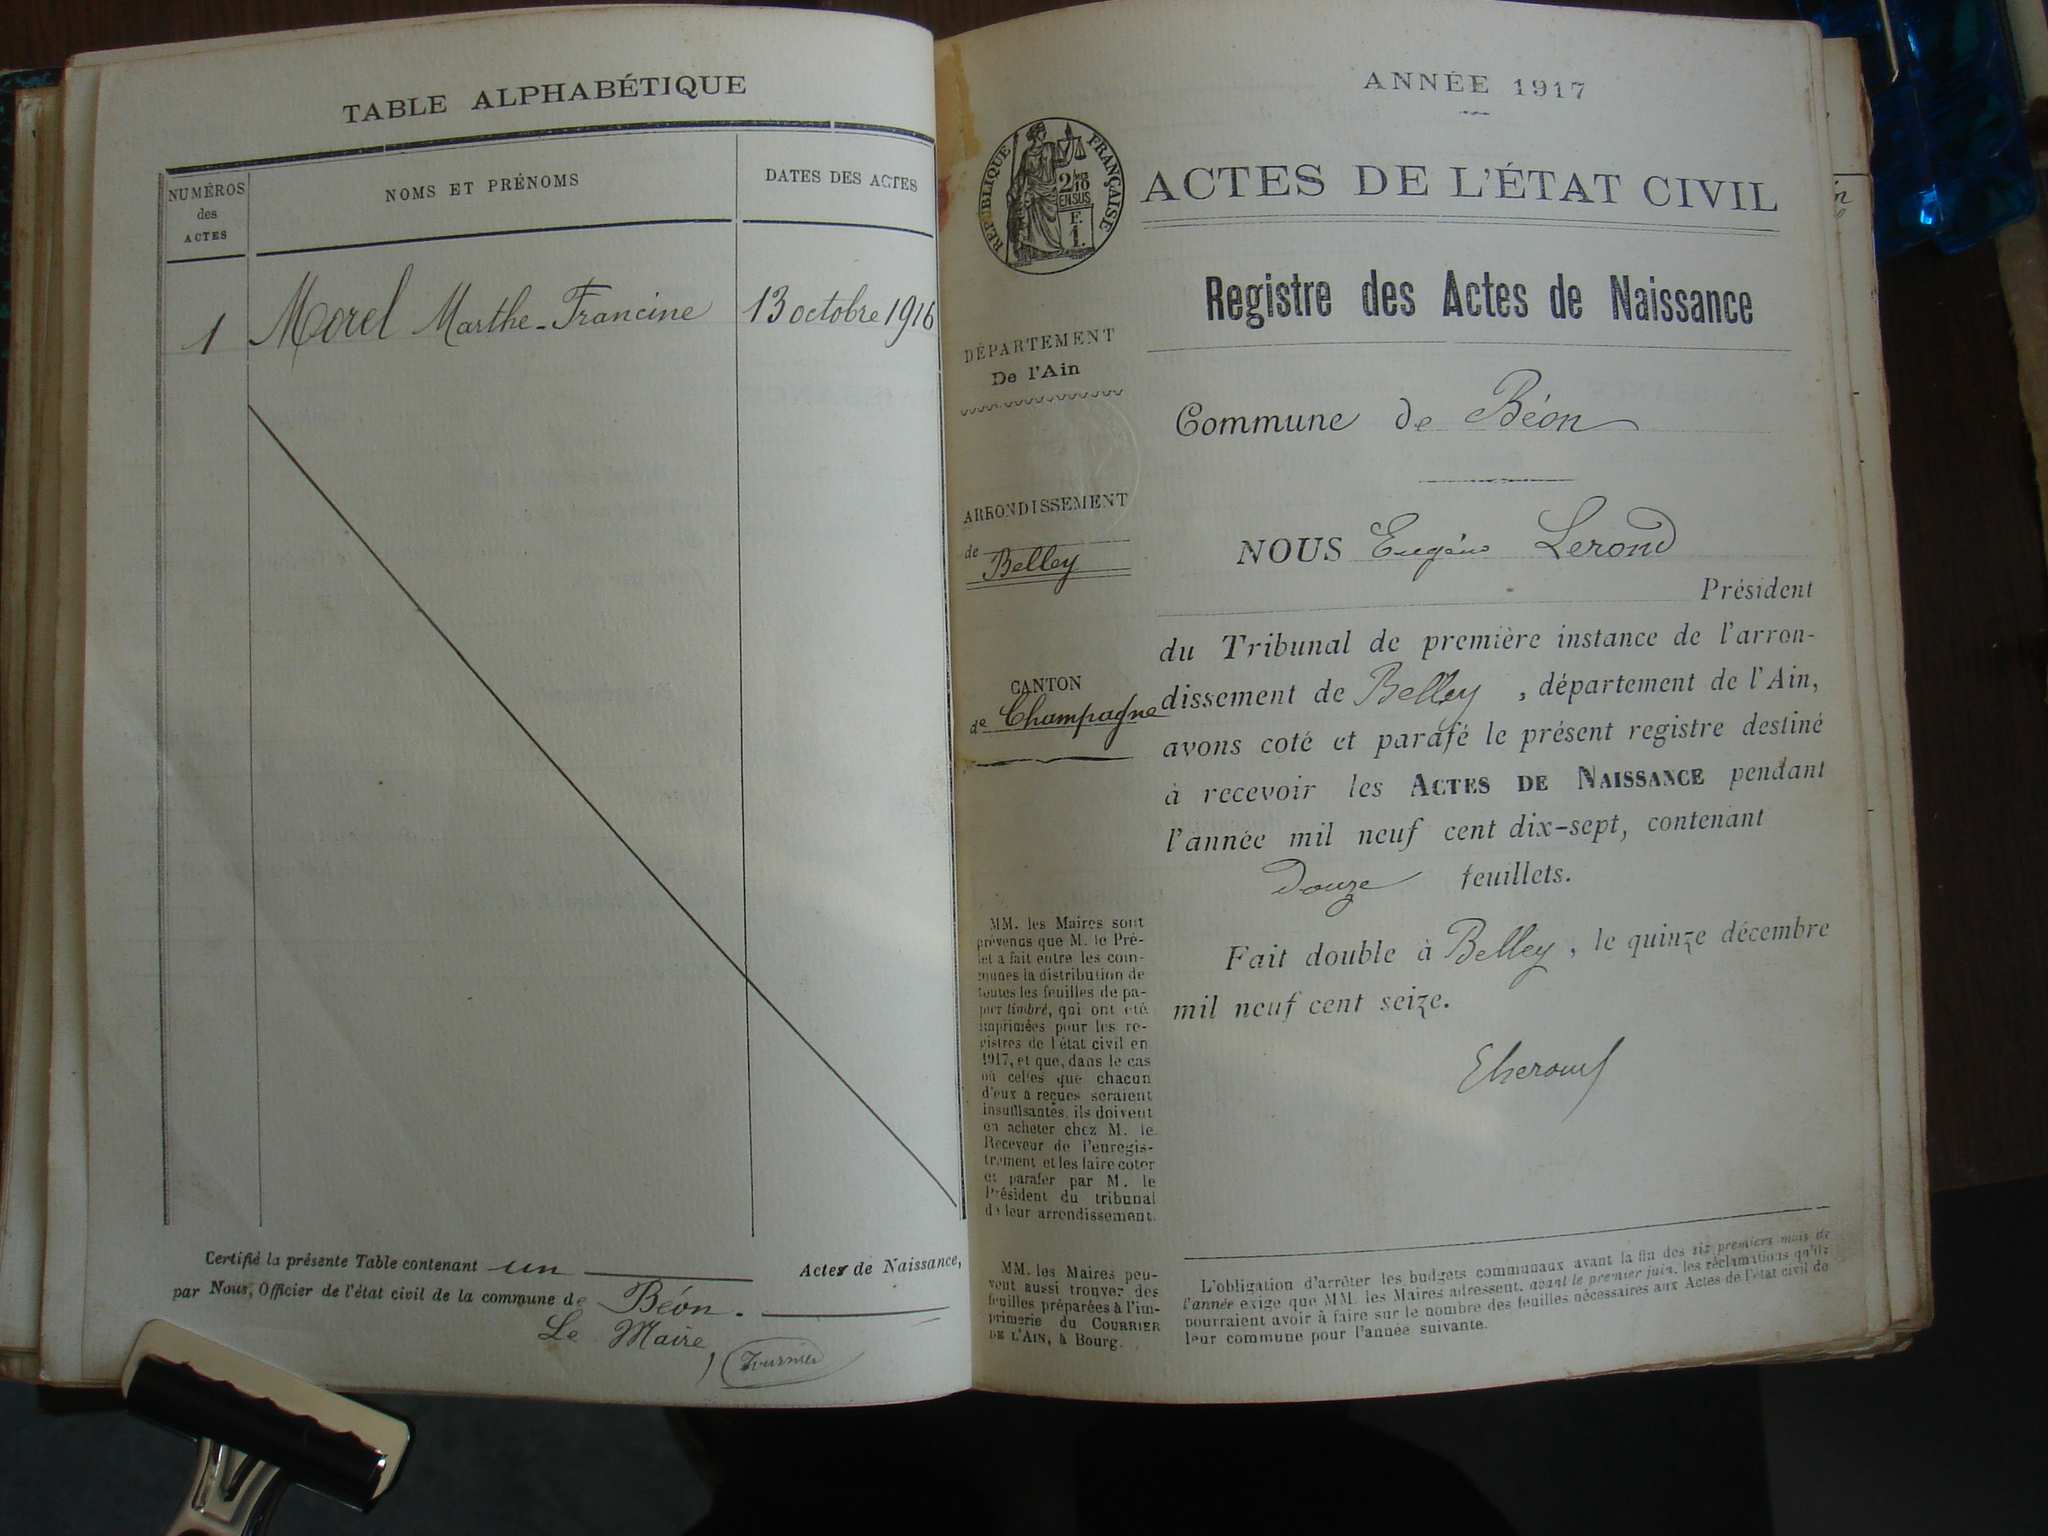 TABLE ALPHABÉTIQUE
NUMÉROS
des
ACTES
NOMS ET PRÉNOMS
DATES DES ACTES
1 Morel Marthe-Francine 13 octobre 1916
Certifié la présente Table contenant un Actes de Naissance,
par Nous, Officier de l'état civil de la commune de Béon.
Le Maire,
Fournier
ANNÉE 1917
RÉPUBLIQUE FRANÇAISE
2/10
EN SUS
F.
1.
ACTES DE L'ÉTAT CIVIL
Registre des Actes de Naissance
DÉPARTEMENT
De l'Ain
ARRONDISSEMENT
de Belley
CANTON
de Champagne
MM. les Maires sont
prévenus que M. le Pré-
fet a fait entre les com-
munes la distribution de
toutes les feuilles de pa-
pier timbré, qui ont été
imprimées pour les re-
gistres de l'état civil en
1917, et que, dans le cas
où celles que chacun
d'eux a reçues seraient
insuffisantes, ils doivent
en acheter chez M. le
Receveur de l'enregis-
trement et les faire coter
et parafer par M. le
Président du tribunal
de leur arrondissement.
MM. les Maires peu-
vent aussi trouver des
feuilles préparées à l'im-
primerie du COURRIER
DE L'AIN, à Bourg.
Commune de Béon
NOUS Eugène Lerond
Président
du Tribunal de première instance de l'arron-
dissement de Belley, département de l'Ain,
avons coté et parafé le présent registre destiné
à recevoir les ACTES DE NAISSANCE pendant
l'année mil neuf cent dix-sept, contenant
Douze feuillets.
Fait double à Belley, le quinze décembre
mil neuf cent seize.
L'obligation d'arrêter les budgets communaux avant la fin des six premiers mois de
l'année exige que MM. les Maires adressent, avant le premier juin, les réclamations qu'ils
pourraient avoir à faire sur le nombre des feuilles nécessaires aux Actes de l'état civil de
leur commune pour l'année suivante.